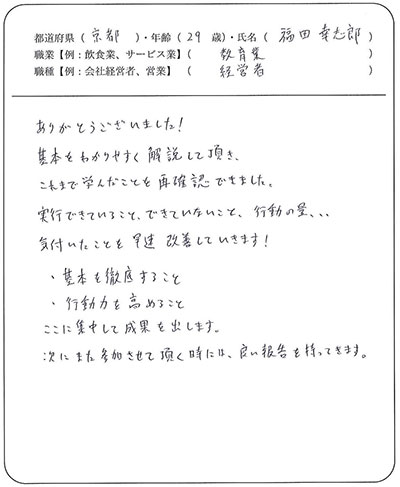 都道府県（ 京都 ）・年齢（ 29 歳）・氏名（ 福田 幸志郎 ）
職業【例：飲食業、サービス業】（ 教育業 ）
職種【例：会社経営者、営業】（ 経営者 ）
ありがとうございました！
基本をわかりやすく解説して頂き、
これまで学んだことを再確認できました。
実行できていること、できていないこと、行動の量、、、
気付いたことを早速改善していきます！
・基本を徹底すること
・行動力を高めること
ここに集中して成果を出します。
次にまた参加させて頂く時には、良い報告を持ってきます。